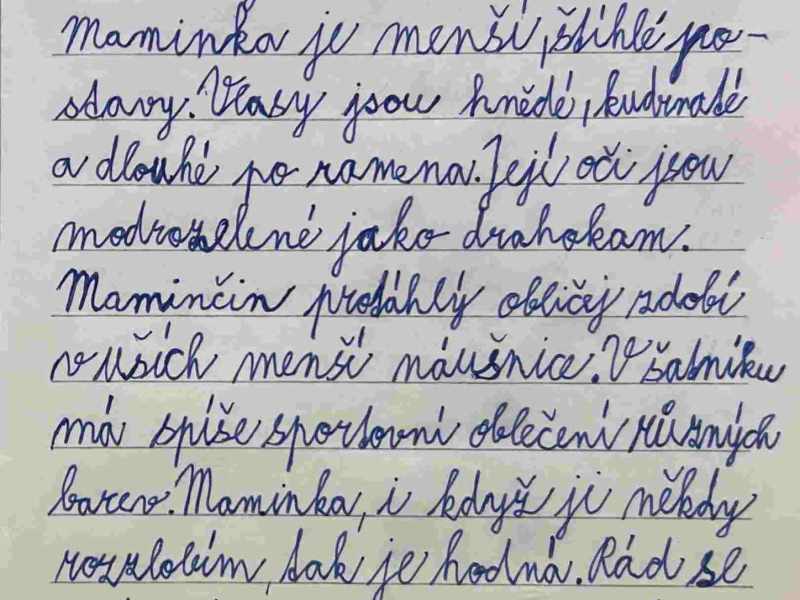 Maminka je menší, štíhlé po-
stavy. Vlasy jsou hnědé, kudrnaté
a dlouhé po ramena. Její oči jsou
modrozelené jako drahokam.
Maminčin protáhlý obličej zdobí
v uších menší náušnice. V šatníku
má spíše sportovní oblečení různých
barev. Maminka, i když ji někdy
rozzlobím, tak je hodná. Rád se